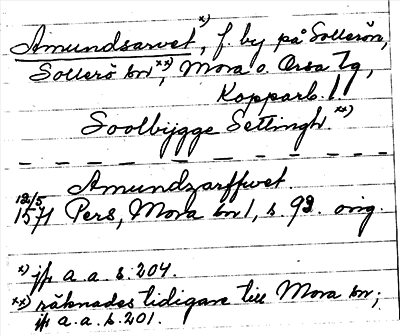 Amundsarvet, x) f. by på Sollerön,
Sollerö sn xx), Mora o. Orsa tg,
Kopparb. l.
Soolbÿgge Settingh. xx)
Amundzarffwet.
12/5 1571 Pers, Mora sn 1, s. 92. orig.
x) jfr a. a. s. 204.
xx) räknades tidigare till Mora sn;
jfr a. a. s. 201.